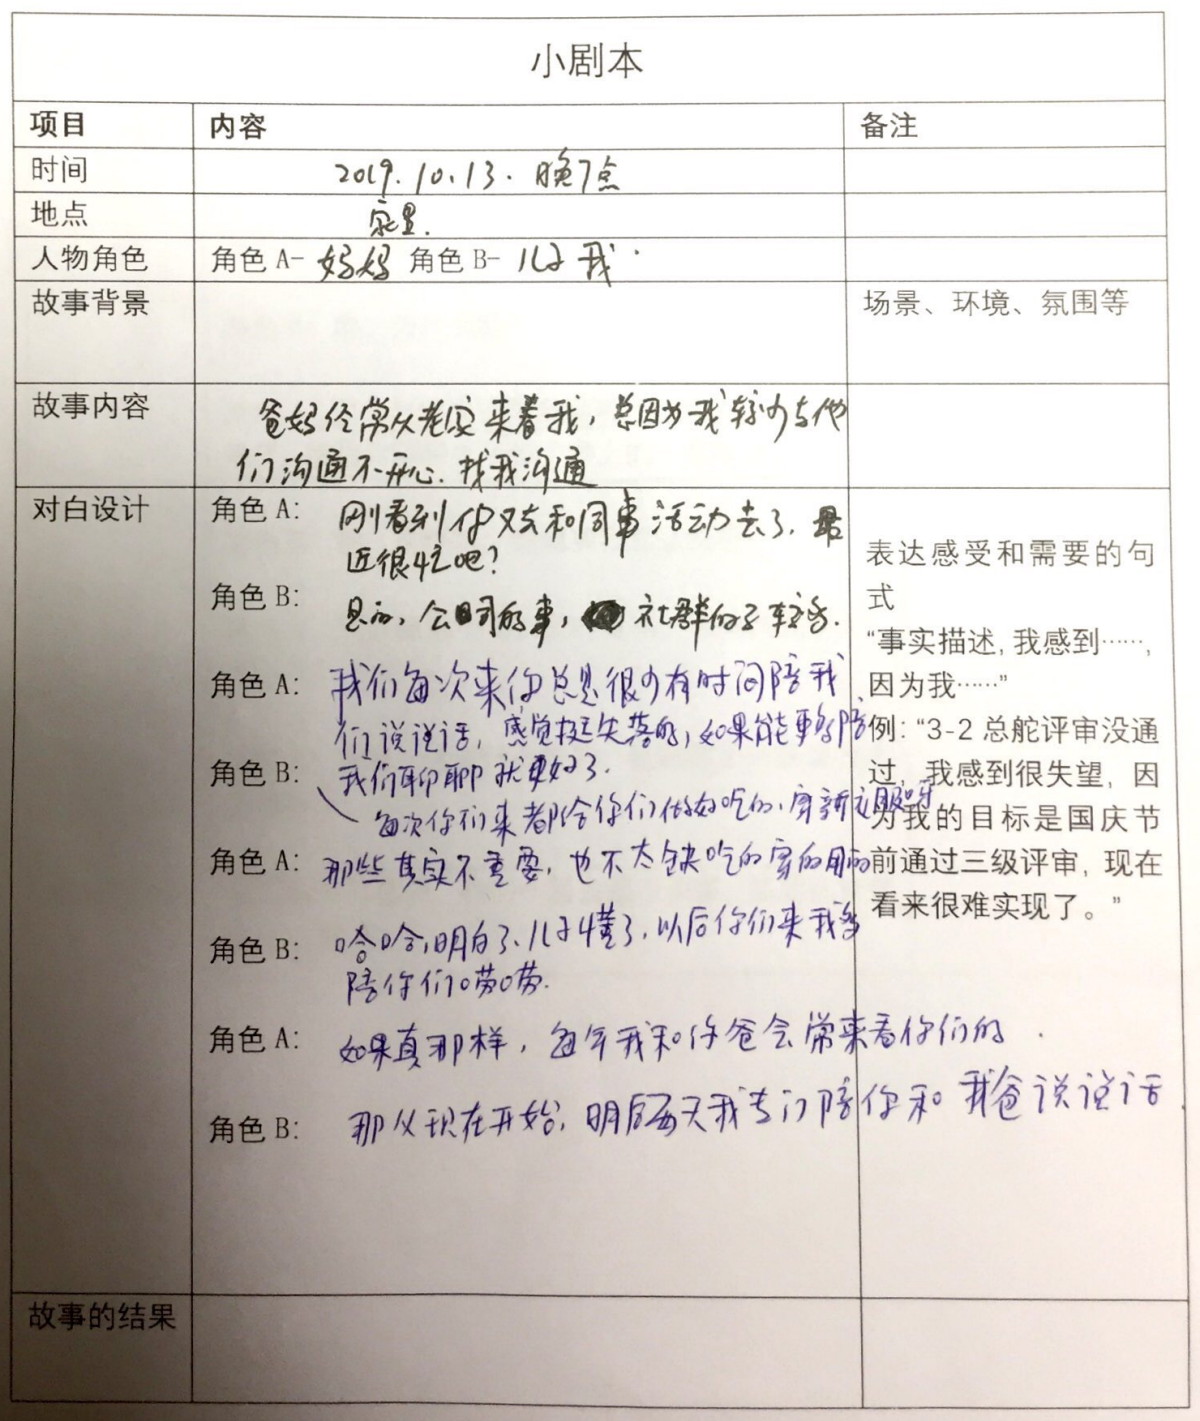 小剧本
项目 内容 备注
时间 2019.10.13. 晚7点
地点 家里.
人物角色 角色 A- 妈妈 角色 B- 儿子 我.
故事背景 场景、环境、氛围等
故事内容 爸妈经常从老家来看我，总因为我较少与他
们沟通不开心.找我沟通
对白设计 角色 A: 刚看到你又去和同事活动去了.最
近很忙吧?
角色 B: 是的，公司的事，社群的事较多.
角色 A: 我们每次来你总是很少有时间陪我
们说说话，感觉挺失落的，如果能更多陪
我们聊聊就更好了.
角色 B: 每次你们来都给你们做好吃的，穿新衣服呀
角色 A: 那些其实不重要，也不太缺吃的穿的用的
角色 B: 哈哈，明白了、儿子懂了.以后你们来我多
陪你们唠唠.
角色 A: 如果真那样，每年我和你爸会常来看你们的.
角色 B: 那从现在开始，明后每天我专门陪你和我爸说说话.
表达感受和需要的句
式
“事实描述, 我感到……,
因为我……”
例: “3-2 总舵评审没通
过，我感到很失望, 因
为我的目标是国庆节
前通过三级评审, 现在
看来很难实现了。”
故事的结果